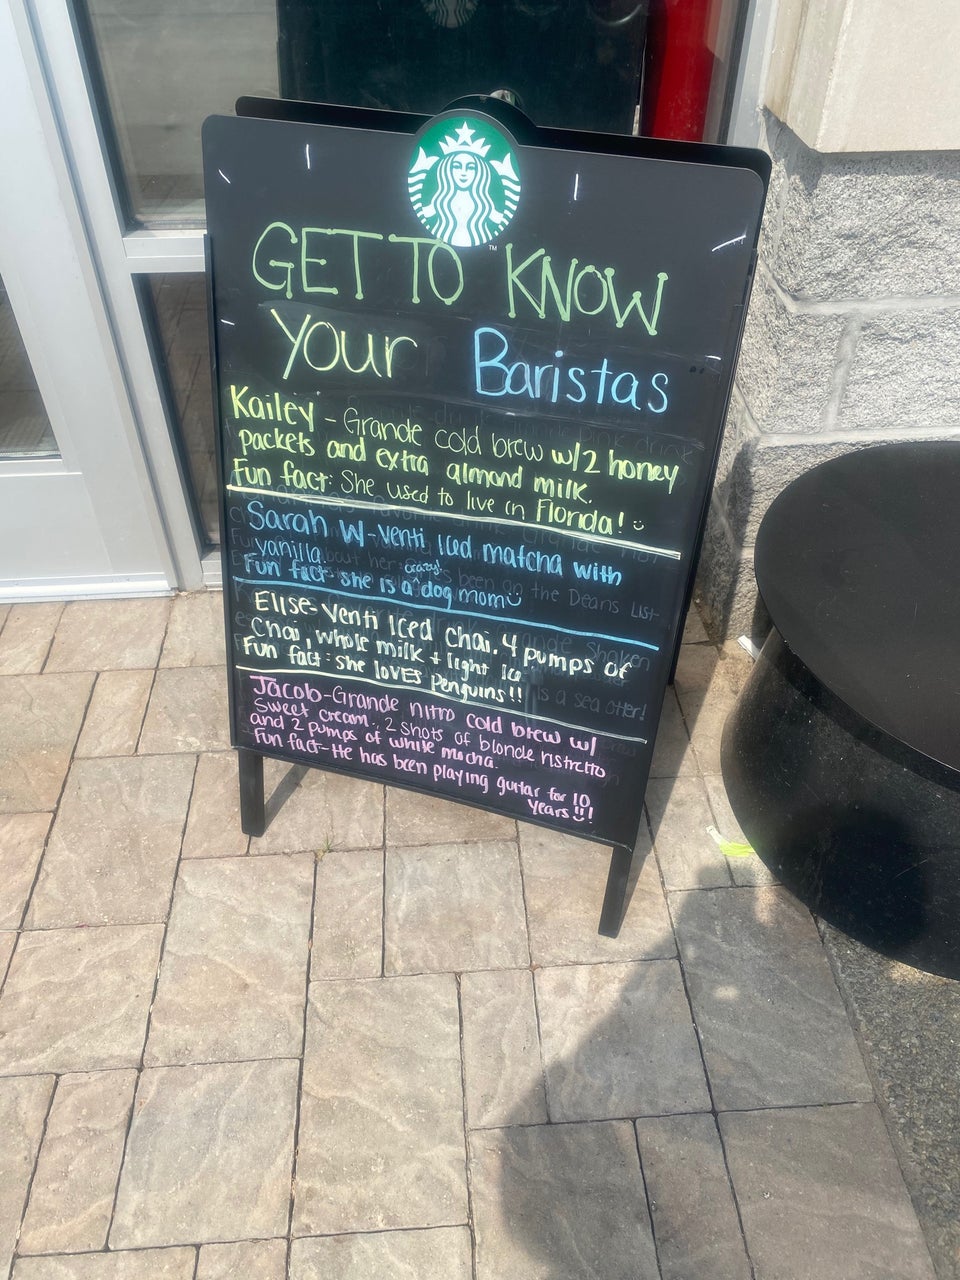 GET TO KNOW
Your Baristas
Kailey - Grande cold brew w/2 honey
packets and extra almond milk.
Fun fact: She used to live in Florida!
Sarah W - venti Iced matcha with
vanilla.
crazy!
Fun fact she is a dog mom
Elise - Venti Iced Chai. 4 pumps of
Chai, whole milk + light ice
Fun fact: she loves Penguins!!
Jacob - Grande nitro cold brew w/
Sweet cream, 2 shots of blonde ristretto
and 2 pumps of white mocha.
Fun fact - He has been playing guitar for 10
years!!
TM